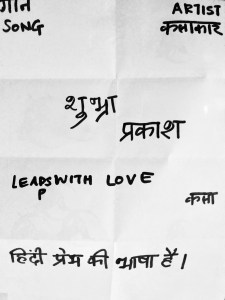 गान ARTIST
SONG कलाकार
शुभ्रा
प्रकाश
LEADS WITH LOVE
P
कला
हिंदी प्रेम की भाषा है।